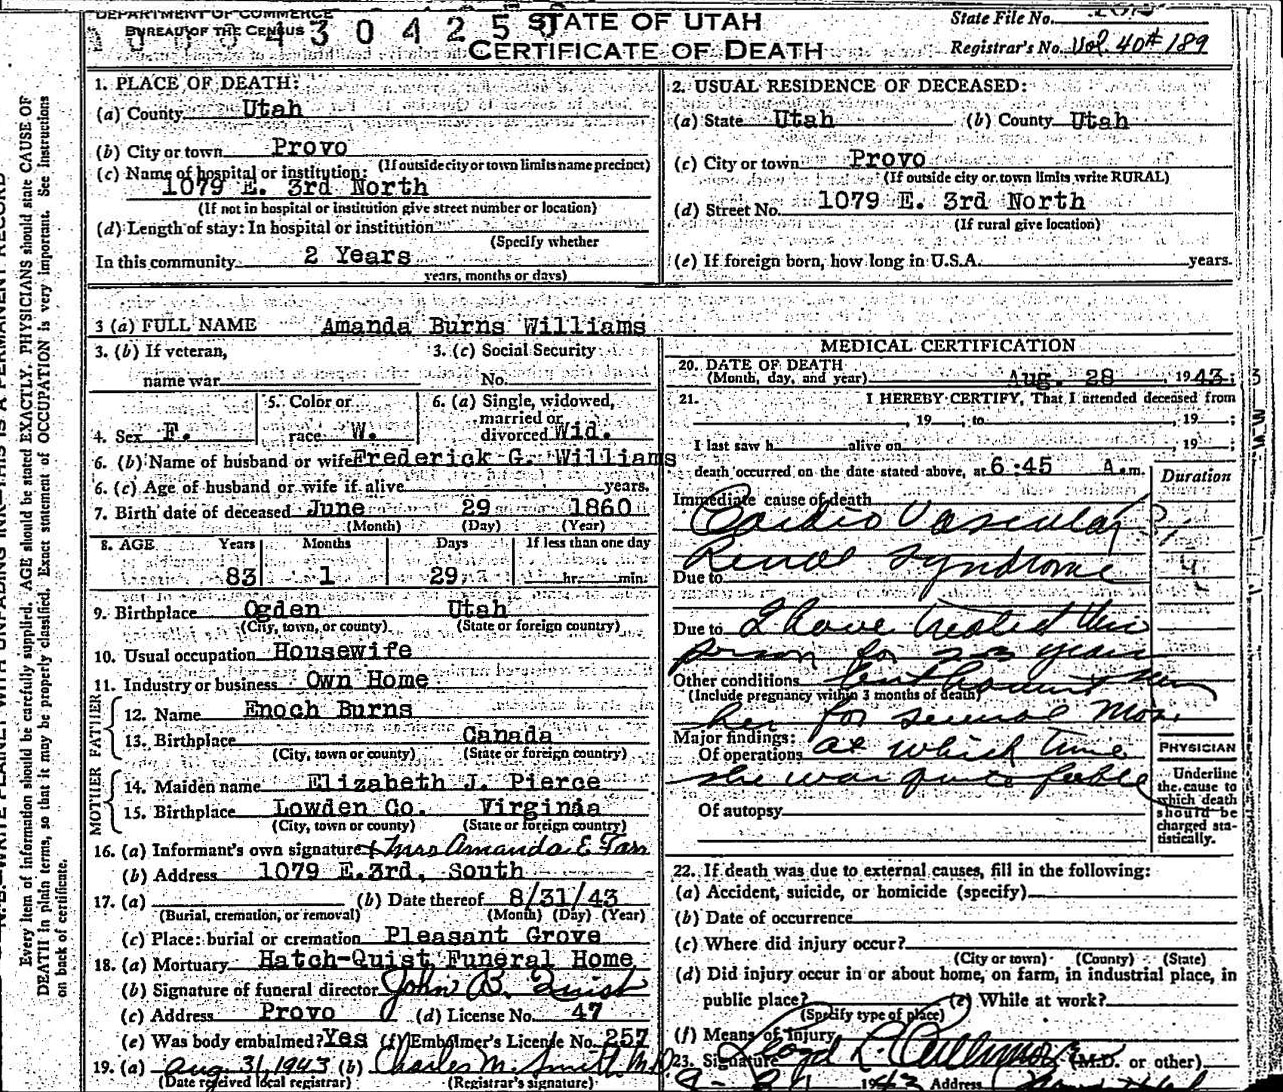 DEPARTMENT OF COMMERCE
BUREAU OF THE CENSUS
STATE OF UTAH
CERTIFICATE OF DEATH
State File No.
Registrar's No. Vol 40# 189
1. PLACE OF DEATH:
(a) County Utah
(b) City or town Provo
(If outside city or town limits name precinct)
(c) Name of hospital or institution:
1079 E. 3rd North
(If not in hospital or institution give street number or location)
(d) Length of stay: In hospital or institution
(Specify whether
In this community 2 Years
years, months or days)
2. USUAL RESIDENCE OF DECEASED:
(a) State Utah (b) County Utah
(c) City or town Provo
(If outside city or town limits write RURAL)
(d) Street No. 1079 E. 3rd North
(If rural give location)
(e) If foreign born, how long in U.S.A. years.
3 (a) FULL NAME Amanda Burns Williams
3. (b) If veteran,
name war
3. (c) Social Security
No.
4. Sex F.
5. Color or
race W.
6. (a) Single, widowed,
married or
divorced Wid.
6. (b) Name of husband or wife Frederick G. Williams
6. (c) Age of husband or wife if alive years.
7. Birth date of deceased June 29 1860
(Month) (Day) (Year)
8. AGE Years Months Days If less than one day
83 1 29 hr. min.
9. Birthplace Ogden Utah
(City, town, or county) (State or foreign country)
10. Usual occupation Housewife
11. Industry or business Own Home
FATHER
12. Name Enoch Burns
13. Birthplace Canada
(City, town or county) (State or foreign country)
MOTHER
14. Maiden name Elizabeth J. Pierce
15. Birthplace Lowden Co. Virginia
(City, town or county) (State or foreign country)
16. (a) Informant's own signature Mrs Amanda E Farr
(b) Address 1079 E.3rd, South
17. (a) (b) Date thereof 8/31/43
(Burial, cremation, or removal) (Month) (Day) (Year)
(c) Place: burial or cremation Pleasant Grove
18. (a) Mortuary Hatch-Quist Funeral Home
(b) Signature of funeral director John B. Quist
(c) Address Provo (d) License No. 47
(e) Was body embalmed? Yes (f) Embalmer's License No. 257
19. (a) Aug. 31, 1943 (b) Charles M. Smith M.D.
(Date received local registrar) (Registrar's signature)
MEDICAL CERTIFICATION
20. DATE OF DEATH
(Month, day, and year) Aug. 28, 1943
21. I HEREBY CERTIFY, That I attended deceased from
, 19 ; to , 19 ;
I last saw h alive on , 19 ;
death occurred on the date stated above, at 6:45 A.m.
Duration
Immediate cause of death
Cardio Vascular
Renal Syndrome
Due to
Due to I have treated this
person for 2-3 years
Other conditions but haven't seen
(Include pregnancy within 3 months of death)
her for several Mos.
Major findings:
Of operations at which time
she was quite feeble
Of autopsy
PHYSICIAN
Underline
the cause to
which death
should be
charged sta-
tistically.
22. If death was due to external causes, fill in the following:
(a) Accident, suicide, or homicide (specify)
(b) Date of occurrence
(c) Where did injury occur?
(City or town) (County) (State)
(d) Did injury occur in or about home, on farm, in industrial place, in
public place? (e) While at work?
(Specify type of place)
(f) Means of injury
23. Signature Lloyd L. Cullimore (M.D. or other)
1943 Address
Every item of information should be carefully supplied. AGE should be stated EXACTLY. PHYSICIANS should state CAUSE OF
DEATH in plain terms, so that it may be properly classified. Exact statement of OCCUPATION is very important. See instructions
on back of certificate.